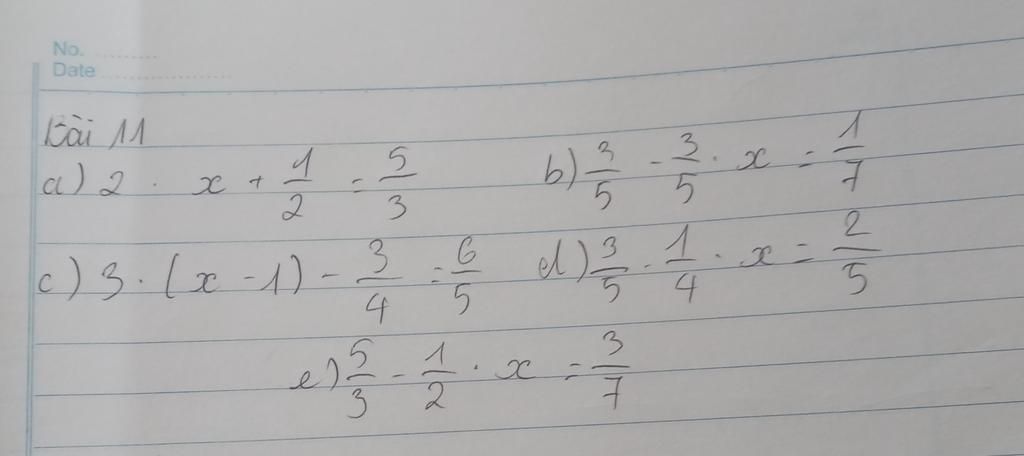 No. ............
Date ......................
Bài 11
a) 2 . x + 1/2 = 5/3 b) 3/5 - 3/5 . x = 1/7
c) 3 . (x - 1) - 3/4 = 6/5 d) 3/5 - 1/4 . x = 2/5
e) 5/3 - 1/2 . x = 3/7